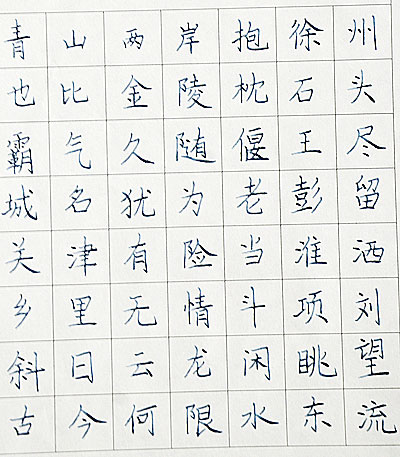 青山两岸抱徐州
也比金陵枕石头
霸气久随偃王尽
城名犹为老彭留
关津有险当淮洒
乡里无情斗项刘
斜日云龙闲眺望
古今何限水东流